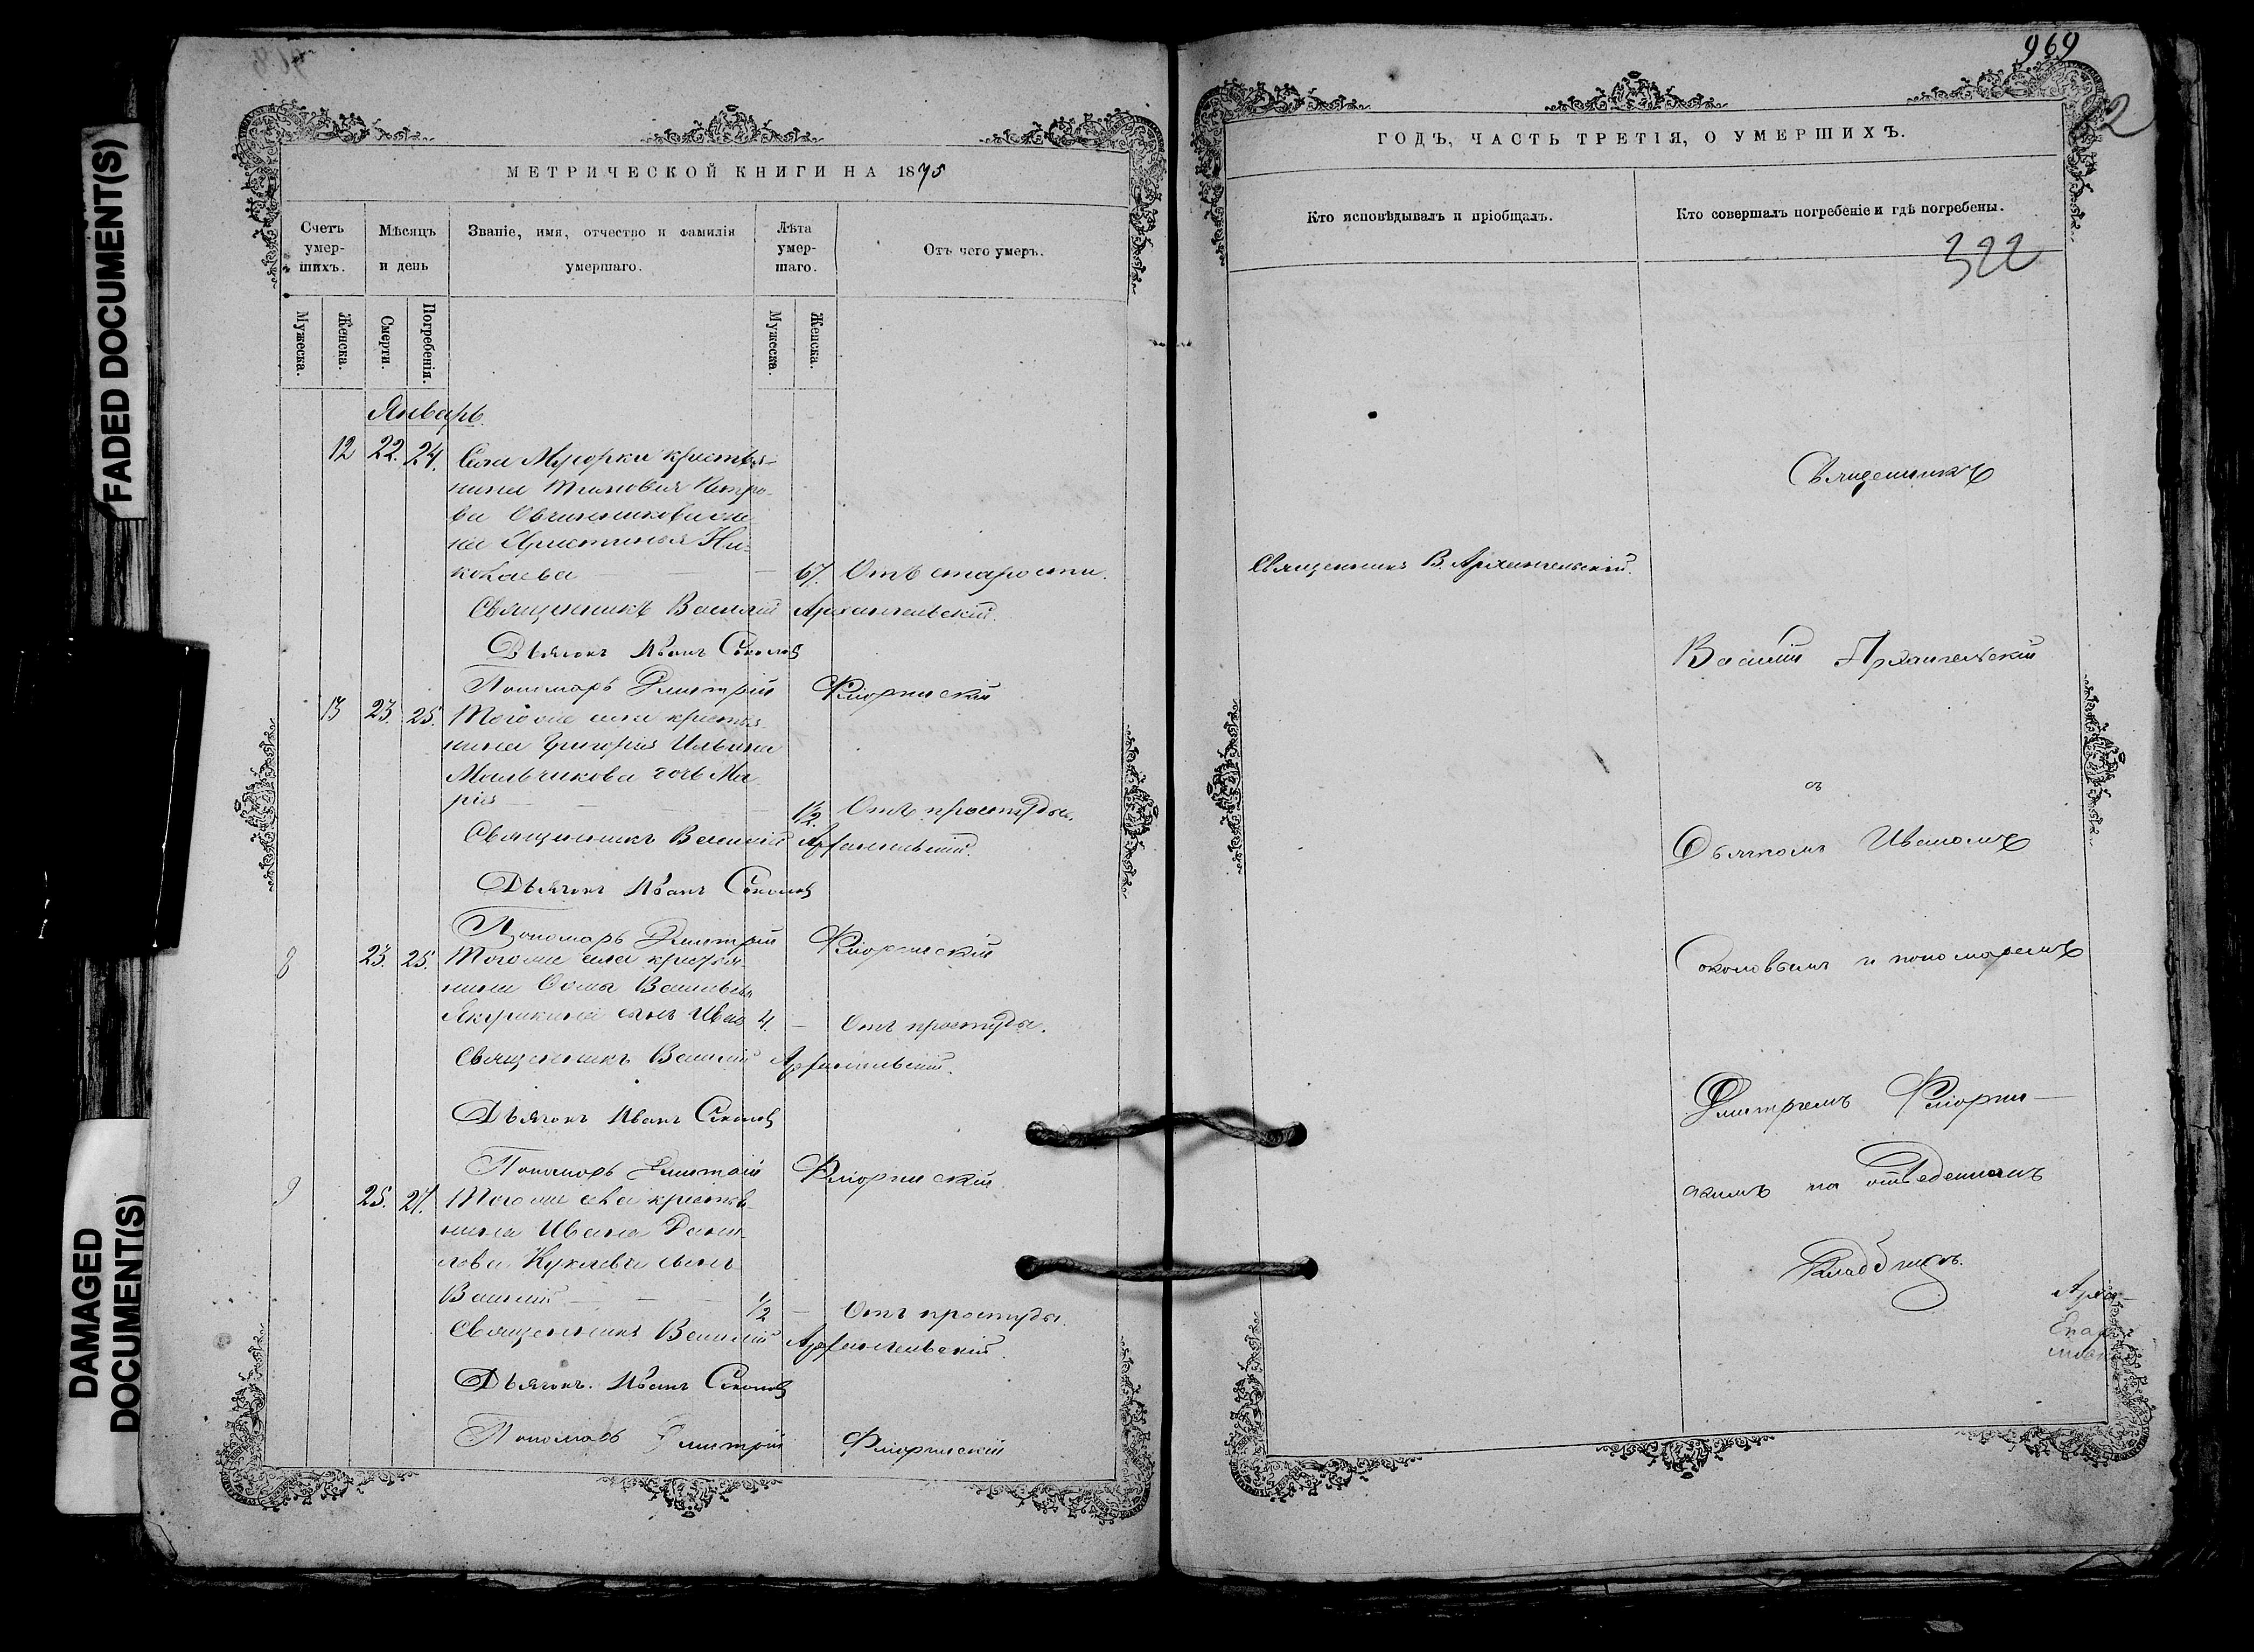 FADED DOCUMENT(S)
DAMAGED
DOCUMENT(S)
МЕТРИЧЕСКОЙ КНИГИ НА 1875
Счетъ умер-шихъ.
Мѣсяцъ и день
Званіе, имя, отчество и фамилія умершаго.
Лѣта умер-шаго.
Отъ чего умеръ.
Мужеска.
Женска.
Смерти.
Погребенія.
Мужеска.
Женска.
Январь.
12 22. 24. Села Мурорки крестья-
нина Тимофея Петро-
ва Овчинникова же-
на Христинья Ни-
колаева 67. Отъ старости.
Священникъ Василій Архангельскій.
Дьячокъ Иванъ Соколовъ
Пономарь Дмитрій Флоринскій
13 23. 25. Того же села крестья-
нина Григорія Ильина
Мальчикова дочь Ма-
рія 1/2. Отъ простуды.
Священникъ Василій Архангельскій.
Дьячокъ Иванъ Соколовъ
Пономарь Дмитрій Флоринскій
8 23. 25. Того же села крестья-
нина Ѳомы Васильева
сынъ Иванъ 4. — Отъ простуды.
Священникъ Василій Архангельскій.
Дьячокъ Иванъ Соколовъ
Пономарь Дмитрій Флоринскій
9 25. 27. Того же села крестья-
нина Ивана Дани-
лова сынъ
Василій 1/2 — Отъ простуды.
Священникъ Василій Архангельскій.
Дьячокъ Иванъ Соколовъ
Пономарь Дмитрій Флоринскій
969
ГОДЪ, ЧАСТЬ ТРЕТІЯ, О УМЕРШИХЪ.
Кто исповѣдывалъ и пріобщалъ.
Кто совершалъ погребеніе и гдѣ погребены.
322
Священникъ
Священникъ В. Архангельскій.
Василій Архангельскій
съ
Дьячкомъ Иваномъ
Соколовымъ и пономаремъ
Дмитріемъ Флорин-
скимъ на отведенномъ
Кладбищѣ.